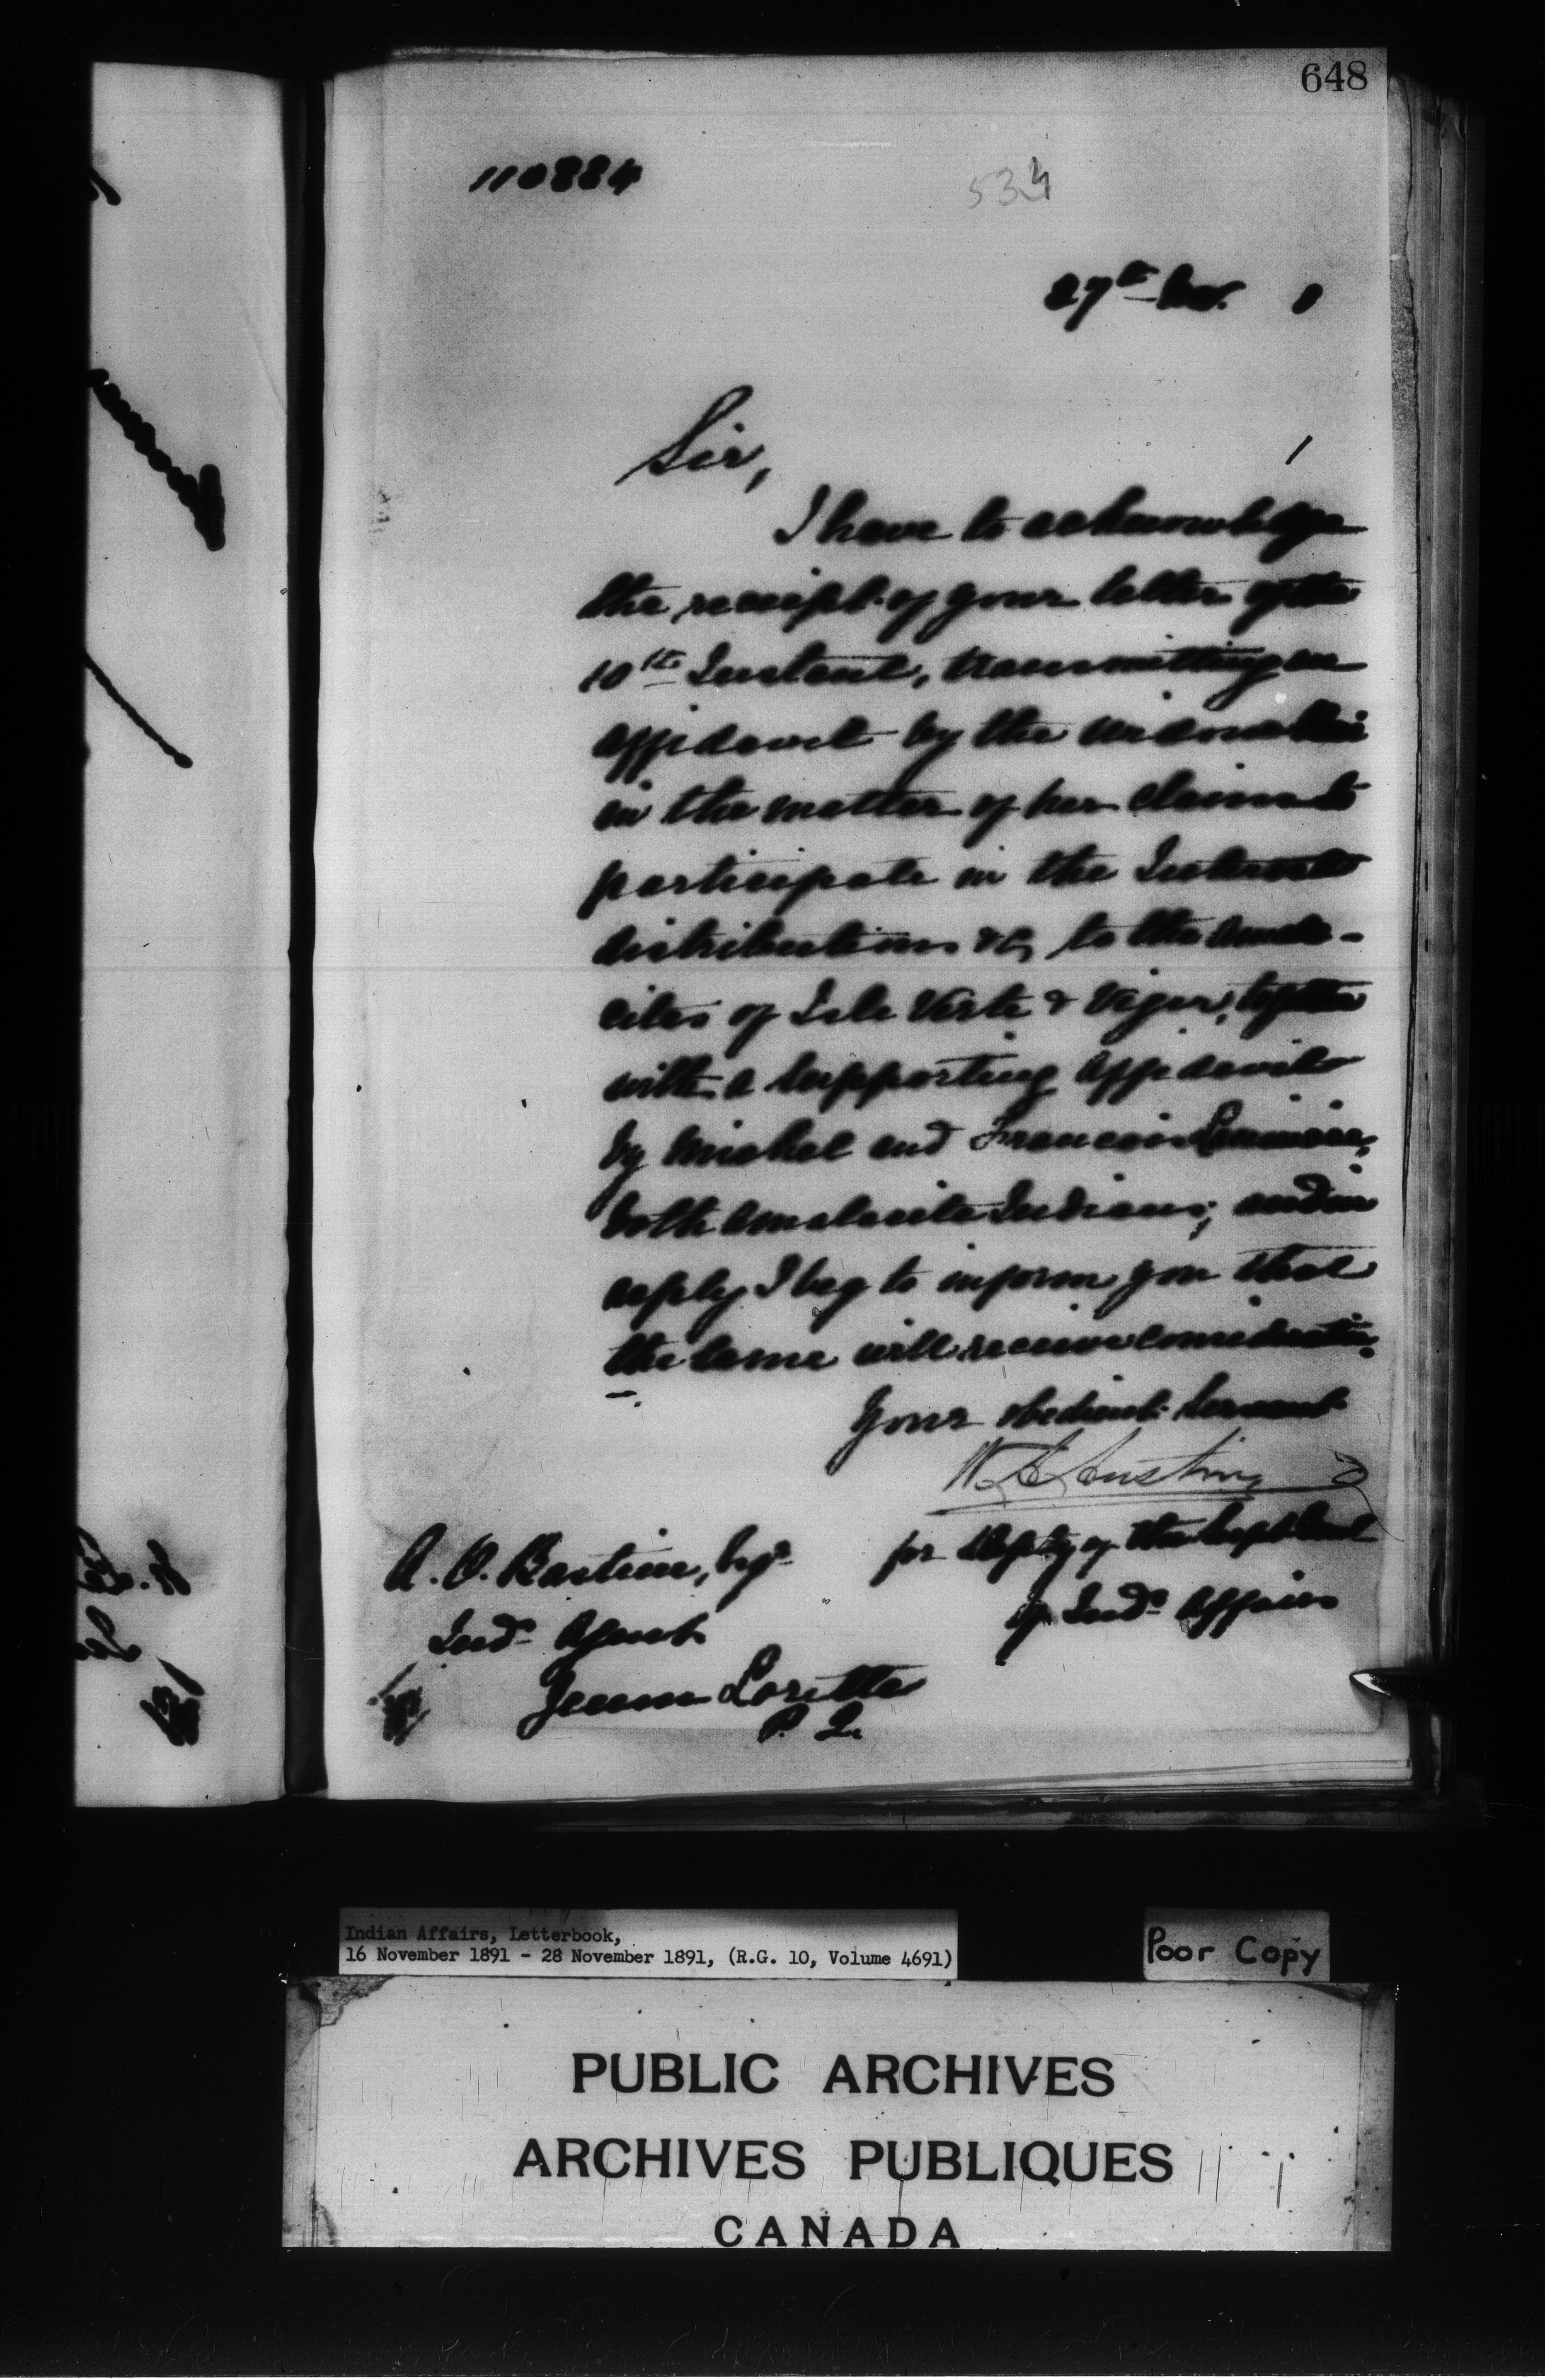 648
110884
534
27th Nov. 1
Sir,
I have to acknowledge
the receipt of your letter of the
10th Instant, transmitting an
affidavit by the
in the matter of her claim to
participate in the Interest
distributions &c, to the Amale-
cites of Isle Verte & Viger, together
with a supporting affidavit
by Michel and Francois Launiere,
both Amalecite Indians; and in
reply I beg to inform you that
the same will receive consideration.
Your obedient servant
W. A. Austin
for Deputy of the Supt. Genl
of Inds. Affairs
A. O. Bastien, Esqr.
Indn. Agent
Jeune Lorette
P. Q.
Indian Affairs, Letterbook,
16 November 1891 - 28 November 1891, (R.G. 10, Volume 4691)
Poor Copy
PUBLIC ARCHIVES
ARCHIVES PUBLIQUES
CANADA